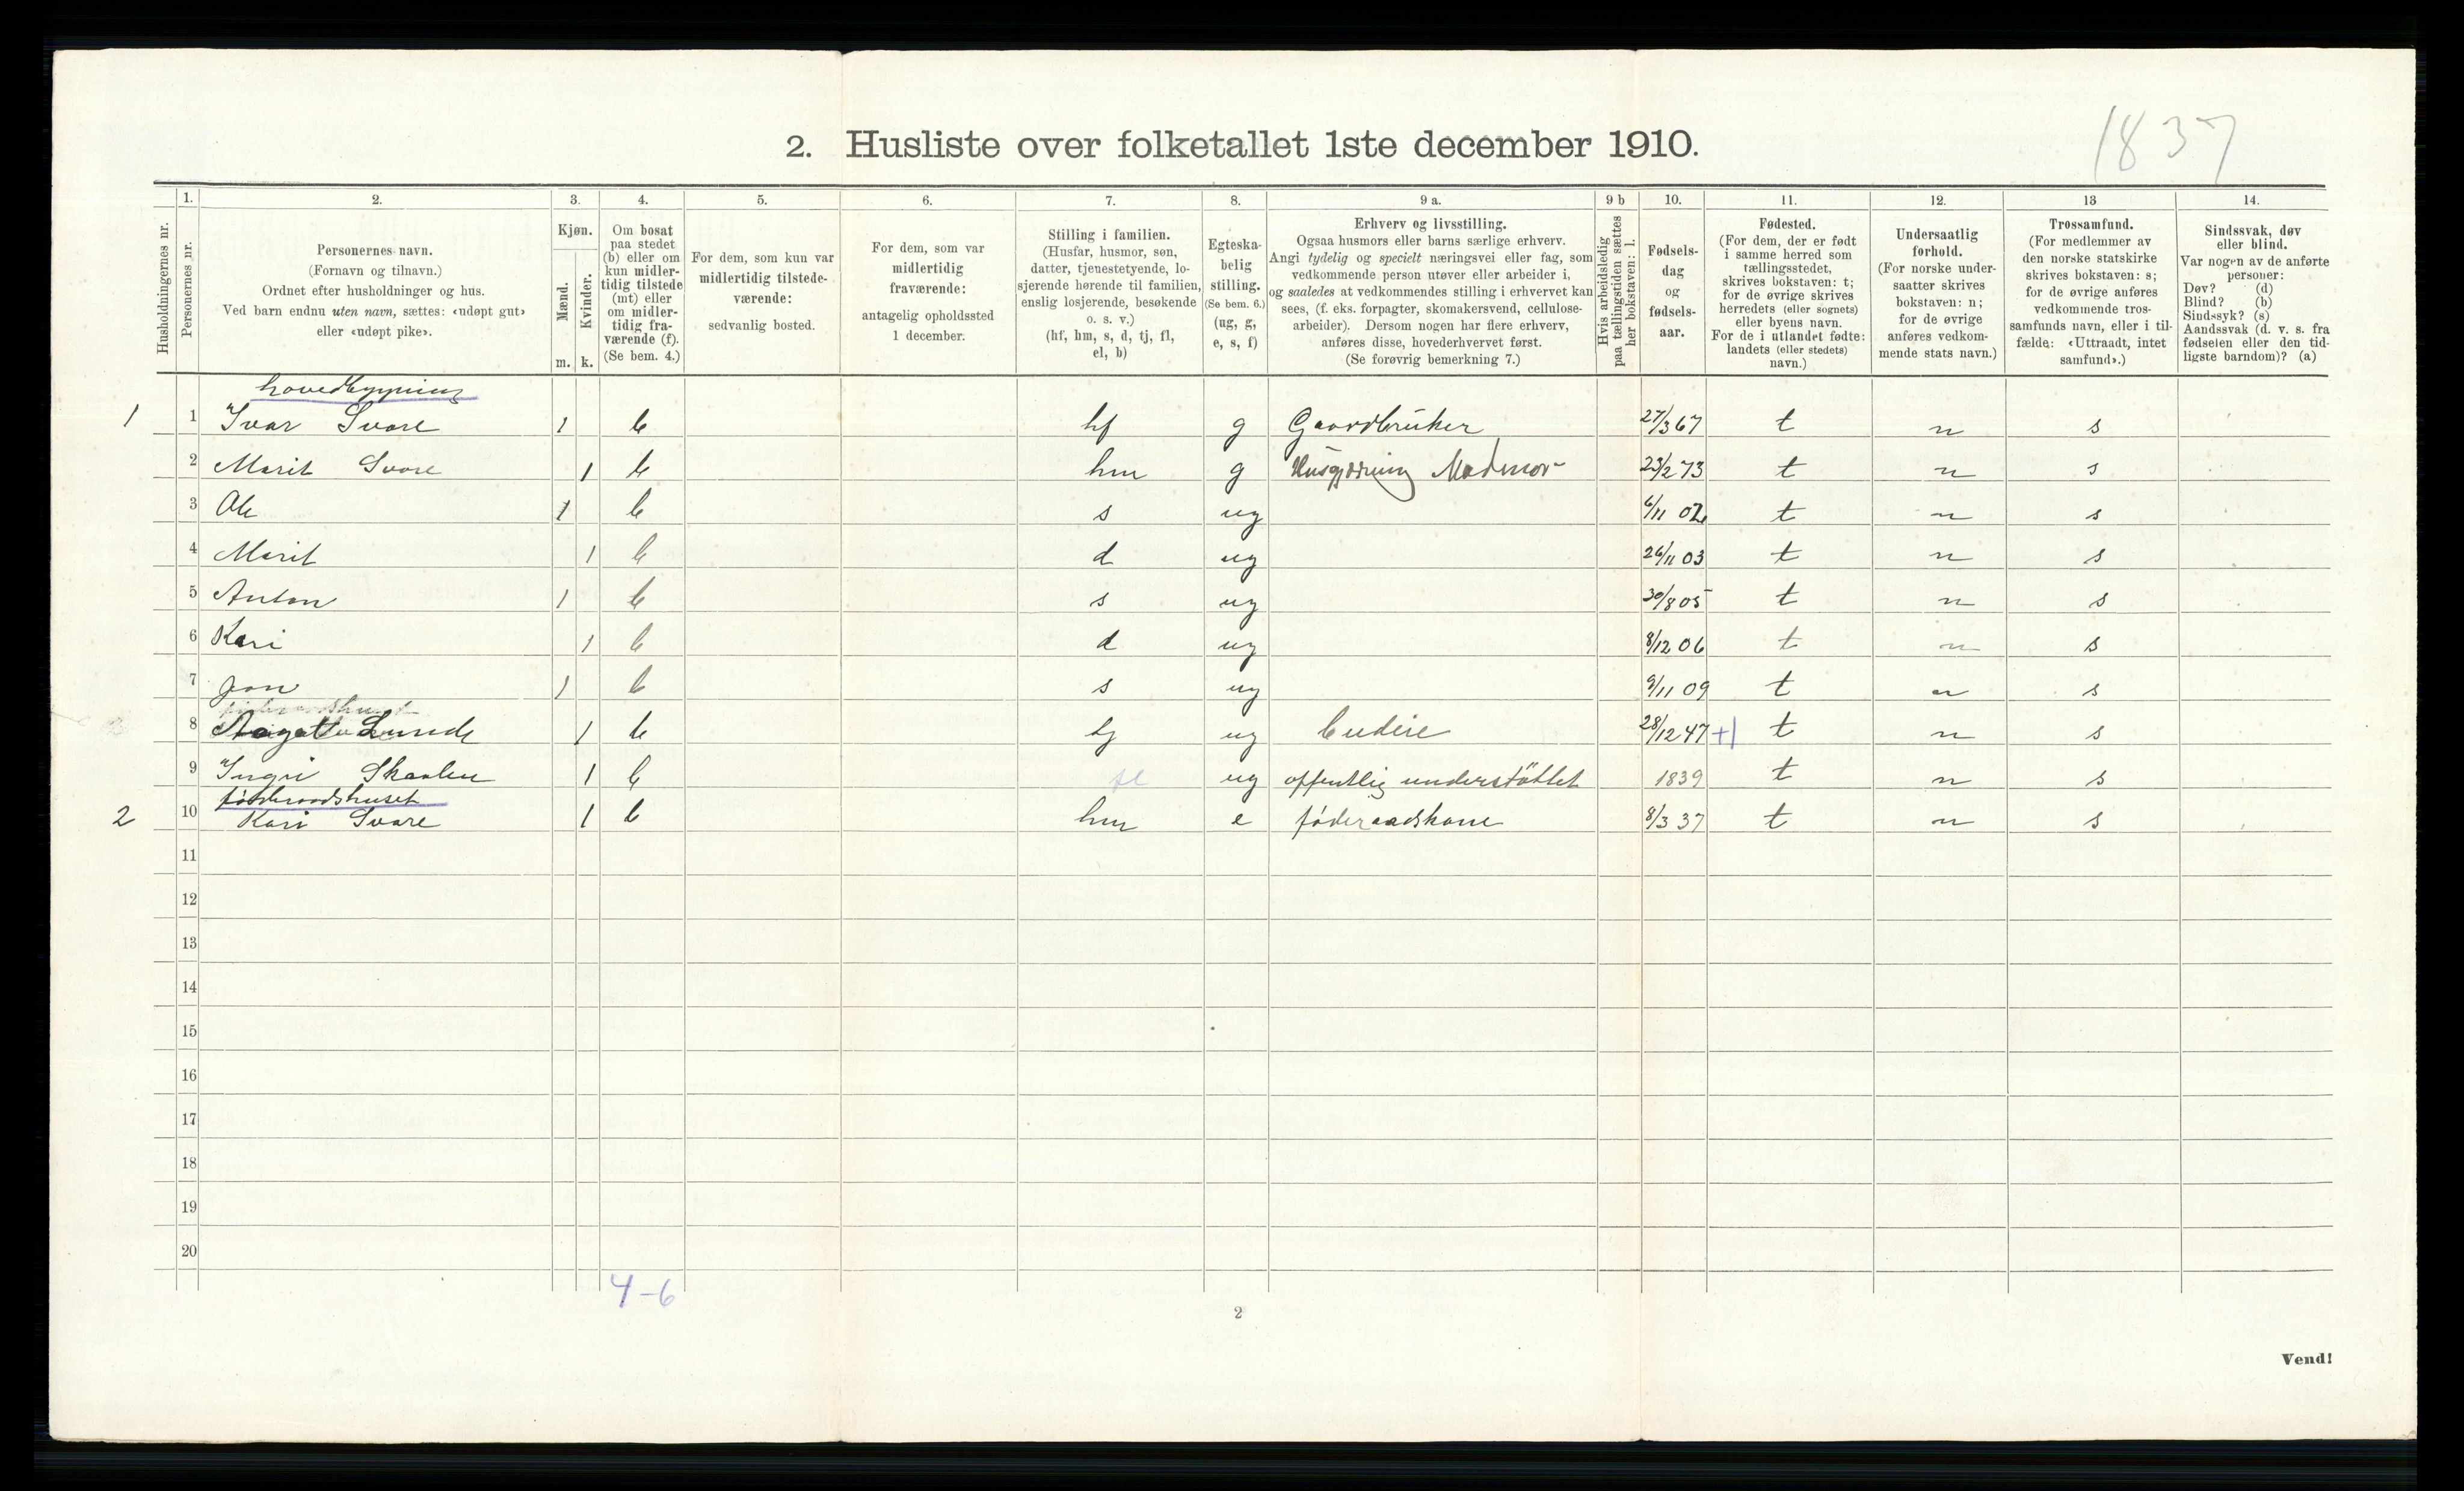 1837
2. Husliste over folketallet 1ste december 1910.
Husholdningernes nr.
1. Personernes nr.
2. Personernes navn.
(Fornavn og tilnavn.)
Ordnet efter husholdninger og hus.
Ved barn endnu uten navn, sættes: «udøpt gut»
eller «udøpt pike».
3. Kjøn.
Mænd. m.
Kvinder. k.
4. Om bosat
paa stedet
(b) eller om
kun midler-
tidig tilstede
(mt) eller
om midler-
tidig fra-
værende (f).
(Se bem. 4.)
5. For dem, som kun var
midlertidig tilstede-
værende:
sedvanlig bosted.
6. For dem, som var
midlertidig
fraværende:
antagelig opholdssted
1 december.
7. Stilling i familien.
(Husfar, husmor, søn,
datter, tjenestetyende, lo-
sjerende hørende til familien,
enslig losjerende, besøkende
o. s. v.)
(hf, hm, s, d, tj, fl,
el, b)
8. Egteska-
belig
stilling.
(Se bem. 6.)
(ug, g,
e, s, f)
9 a. Erhverv og livsstilling.
Ogsaa husmors eller barns særlige erhverv.
Angi tydelig og specielt næringsvei eller fag, som
vedkommende person utøver eller arbeider i,
og saaledes at vedkommendes stilling i erhvervet kan
sees, (f. eks. forpagter, skomakersvend, cellulose-
arbeider). Dersom nogen har flere erhverv,
anføres disse, hovederhvervet først.
(Se forøvrig bemerkning 7.)
9 b Hvis arbeidsledig
paa tællingstiden sættes
her bokstaven: l.
10. Fødsels-
dag
og
fødsels-
aar.
11. Fødested.
(For dem, der er født
i samme herred som
tællingsstedet,
skrives bokstaven: t;
for de øvrige skrives
herredets (eller sognets)
eller byens navn.
For de i utlandet fødte:
landets (eller stedets)
navn.)
12. Undersaatlig
forhold.
(For norske under-
saatter skrives
bokstaven: n;
for de øvrige
anføres vedkom-
mende stats navn.)
13 Trossamfund.
(For medlemmer av
den norske statskirke
skrives bokstaven: s;
for de øvrige anføres
vedkommende tros-
samfunds navn, eller i til-
fælde: «Uttraadt, intet
samfund».)
14. Sindssvak, døv
eller blind.
Var nogen av de anførte
personer:
Døv? (d)
Blind? (b)
Sindssyk? (s)
Aandssvak (d. v. s. fra
fødselen eller den tid-
ligste barndom)? (a)
hovedbygning
1 1 Ivar Svare 1 b hf g Gaardbruker 27/3 67 t n s
2 Marit Svare 1 b hm g Husgjerning Madmor 23/2 73 t n s
3 Ole 1 b s ug 6/11 02 t n s
4 Marit 1 b d ug 26/11 03 t n s
5 Anton 1 b s ug 30/8 05 t n s
6 Kari 1 b d ug 8/12 06 t n s
7 Jon 1 b s ug 9/11 09 t n s
8 Aagot Lunde 1 b tj ug budeie 28/12 47 +1 t n s
9 Ingri Skaalen 1 b fl ug offentlig understöttet 1839 t n s
föderaadshuset
2 10 Kari Svare 1 b hm e föderaadskone 8/3 37 t n s
11
12
13
14
15
16
17
18
19
20
4-6
2
Vend!